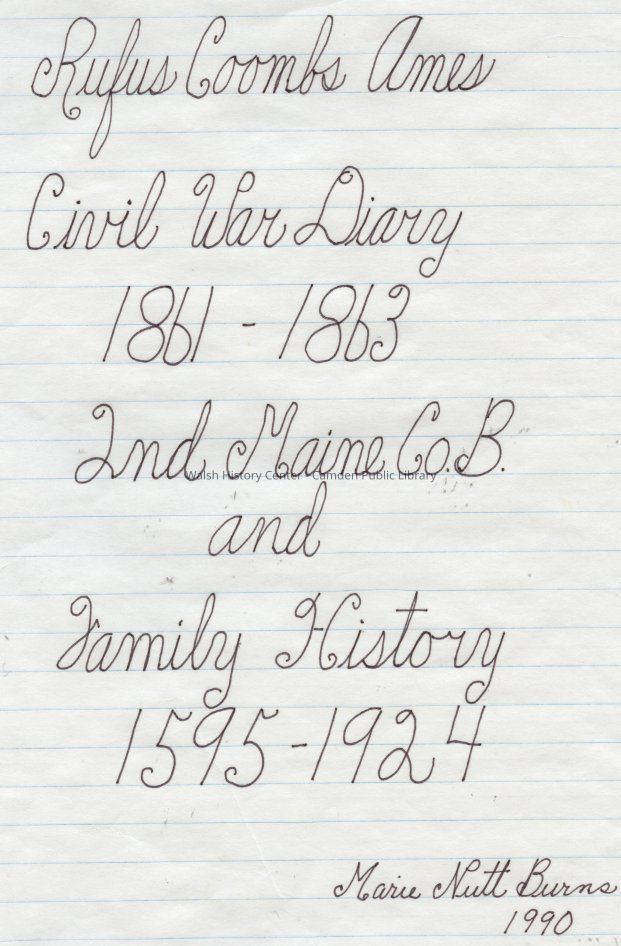 Rufus Coombs Ames
Civil War Diary
1861 - 1863
2nd Maine Co. B.
Walsh History Center - Camden Public Library
and
Family History
1595-1924
Marie Nutt Burns
1990